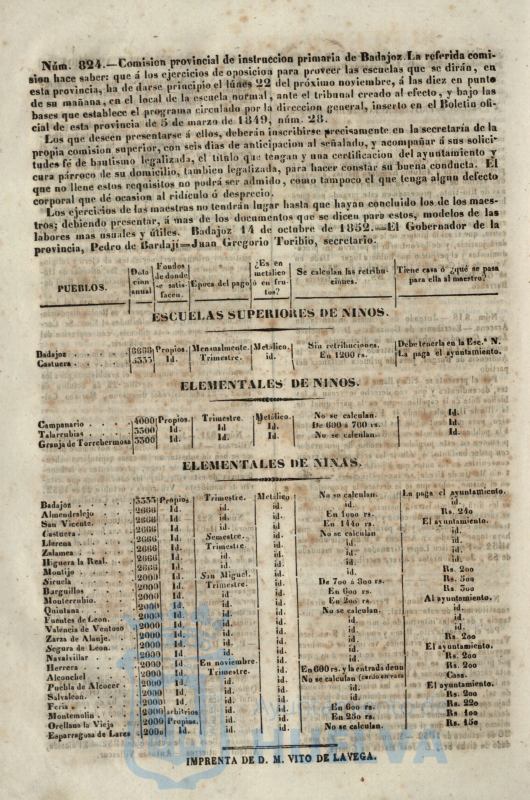 Núm. 824.—Comision provincial de instruccion primaria de Badajoz. La referida comi-
sion hace saber: que á los ejercicios de oposicion para proveer las escuelas que se dirán, en
esta provincia, ha de darse principio el lúnes 22 del próximo noviembre, á las diez en punto
de su mañana, en el local de la escuela normal, ante el tribunal creado al efecto, y bajo las
bases que establece el programa circulado por la direccion general, inserto en el Boletin ofi-
cial de esta provincia de 5 de marzo de 1849, núm. 28.
Los que deseen presentarse á ellos, deberán inscribirse precisamente en la secretaría de la
propia comision superior, con seis dias de anticipacion al señalado, y acompañar á sus solici-
tudes fé de bautismo legalizada, el título que tengan y una certificacion del ayuntamiento y
cura párroco de su domicilio, tambien legalizada, para hacer constar su buena conducta. El
que no llene estos requisitos no podrá ser admido, como tampoco el que tenga algun defecto
corporal que dé ocasion al ridículo ó desprecio.
Los ejercicios de las maestras no tendrán lugar hasta que hayan concluido los de los maes-
tros; debiendo presentar, á mas de los documentos que se dicen para estos, modelos de las
labores mas usuales y útiles. Badajoz 14 de octubre de 1852.—El Gobernador de la
provincia, Pedro de Bardají—Juan Gregorio Toribio, secretario.
PUEBLOS. Dota cion anual Fondos de donde se satis- facen. Epoca del pago ¿Es en metálico ó en fru- tos? Se calculan las retribu- ciones. Tiene casa ó ¿qué se pasa para ella al maestro?
ESCUELAS SUPERIORES DE NIÑOS.
Badajoz 6666 Propios. Mensualmente. Metálico. Sin retribuciones. Debe tenerla en la Esc.ª N.
Castuera 5333 Id. Trimestre. id. En 1200 rs. La paga el ayuntamiento.
ELEMENTALES DE NIÑOS.
Campanario 4000 Propios. Trimestre. Metálico. No se calculan. Id.
Talarrubias 3300 Id. Id. Id. De 600 á 760 rs. Id.
Granja de Torrehermosa 3300 Id. Id. Id. No se calculan. Id.
ELEMENTALES DE NIÑAS.
Badajoz 3333 Propios Trimestre. Metálico No se calculan. La paga el ayuntamiento.
Almendralejo 2666 Id. id. id. id. id.
San Vicente. 2666 Id. id. id. En 1000 rs. Rs. 240
Castuera 2666 Id. id. id. En 1440 rs. El ayuntamiento.
Llerena 2666 Id. Semestre. id. No se calculan id.
Zalamea 2666 Id. Trimestre. id. id. id.
Higuera la Real. 2666 Id. id. id. id. id.
Montijo 2000 Id. id. id. id. id.
Siruela 2000 Id. San Miguel. id. id. Rs. 200
Barguillos 2000 Id. Trimestre. id. De 700 á 800 rs. Rs. 500
Monterrubio. 2000 Id. id. id. En 600 rs. Rs. 300
Quintana 2000 Id. id. id. En 200 rs. Al ayuntamiento.
Fuentes de Leon. 2000 Id. id. id. No se calculan. id.
Valencia de Ventoso 2000 Id. id. id. id. id.
Zarza de Alanje. 2000 Id. id. id. id. id.
Segura de Leon. 2000 Id. id. id. id. Rs. 200
Navalvillar 2000 Id. id. id. id. El ayuntamiento.
Herrera 2000 Id. En noviembre. id. id. Rs. 200
Alconchel 2000 Id. Trimestre. id. En 600 rs. y la entrada de un Rs. 200
Puebla de Alcocer 2000 Id. id. id. No se calculan Casa.
Salvaleon. 2000 Id. id. id. id. El ayuntamiento.
Feria 2000 Id. id. id. id. Rs. 200
Montemolin 2000 arbitrios id. id. En 600 rs. Rs. 220
Orellana la Vieja 2000 Propios. id. id. En 250 rs. Rs. 400
Esparragosa de Lares 2000 Id. id. id. No se calculan. Rs. 450
HUELVA
IMPRENTA DE D. M. VITO DE LAVEGA.